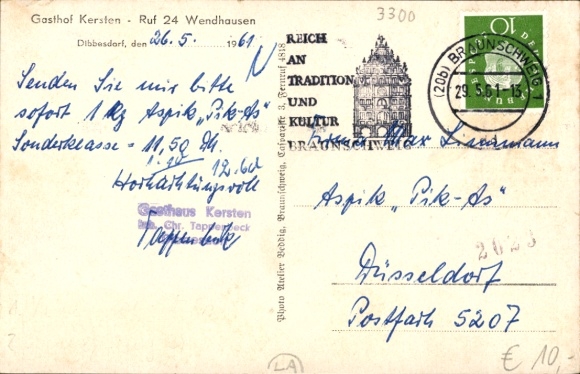 Gasthof Kersten - Ruf 24 Wendhausen
Dibbesdorf, den 26.5. 1961
Senden Sie mir bitte
sofort 1 kg Aspik "Pik-As"
Sonderklasse = 11,50 DM.
12.60
Hochachtungsvoll
Gasthaus Kersten
Inh. Chr. Tappenbeck
Tappenbeck
Photo Atelier Beddig, Braunschweig, Fernruf 4818
3300
REICH
AN
TRADITION
UND
KULTUR
BRAUNSCHWEIG
(20b) BRAUNSCHWEIG 1
29.5.61-15
10
Firma Max Linnmann
Aspik "Pik-As"
Düsseldorf
Postfach 5207
LA
€ 10,-